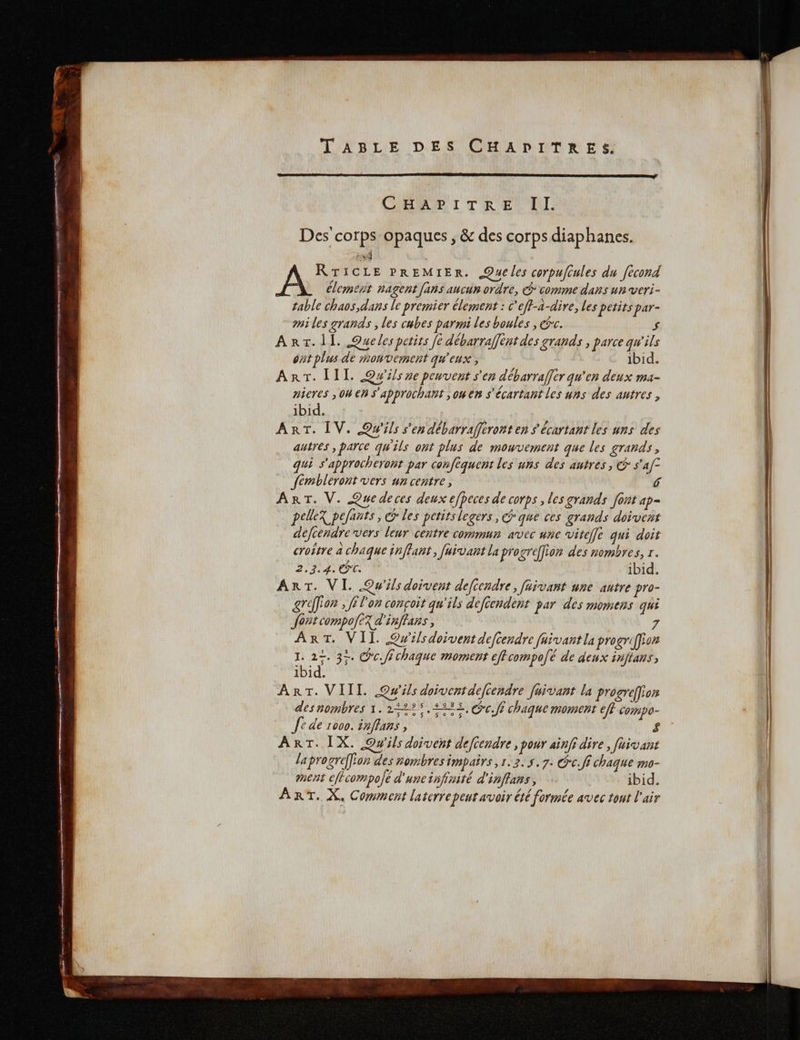 TABLE DES CHAPITRES.
CHAPITRE II.
Des corps opaques, & des corps diaphanes.
ARTICLE PREMIER. Que les corpuſcules du ſecond
élement nagent ſans aucun ordre, & comme dans un veri-
table chaos, dans le premier élement : c'eſt-à-dire, les petits par-
mi les grands, les cubes parmi les boules, &c. 5
ART. II. Que les petits ſe débarraſſent des grands, parce qu'ils
ont plus de mouvement qu'eux, ibid.
ART. III. Qu'ils ne peuvent s'en débarraſſer qu'en deux ma-
nieres, ou en s'approchant, ou en s'écartant les uns des autres,
ibid.
ART. IV. Qu'ils s'en débarraſſeront en s'écartant les uns des
autres, parce qu'ils ont plus de mouvement que les grands,
qui s'approcheront par conſequent les uns des autres, & s'aſ-
ſembleront vers un centre, 6
ART. V. Que de ces deux eſpeces de corps, les grands ſont ap-
pellez peſants, & les petits legers, & que ces grands doivent
deſcendre vers leur centre commun avec une viteſſe qui doit
croître à chaque inſtant, ſuivant la progreſſion des nombres, 1.
2. 3. 4. &c. ibid.
ART. VI. Qu'ils doivent deſcendre, ſuivant une autre pro-
greſſion, ſi l'on conçoit qu'ils deſcendent par des momens qui
ſont compoſez d'inſtans, 7
ART. VII. Qu'ils doivent deſcendre ſuivant la progreſſion
ibid.
ART. VIII. Qu'ils doivent deſcendre ſuivant la progreſſion
ſé de 1000. inſtans, 8
ART. IX. Qu'ils doivent deſcendre, pour ainſi dire, ſuivant
la progreſſion des nombres impairs, 1. 3. 5. 7. &c. ſi chaque mo-
ment eſt compoſé d'une infinité d'inſtans, ibid.
ART. X. Comment la terre peut avoir été formée avec tout l'air